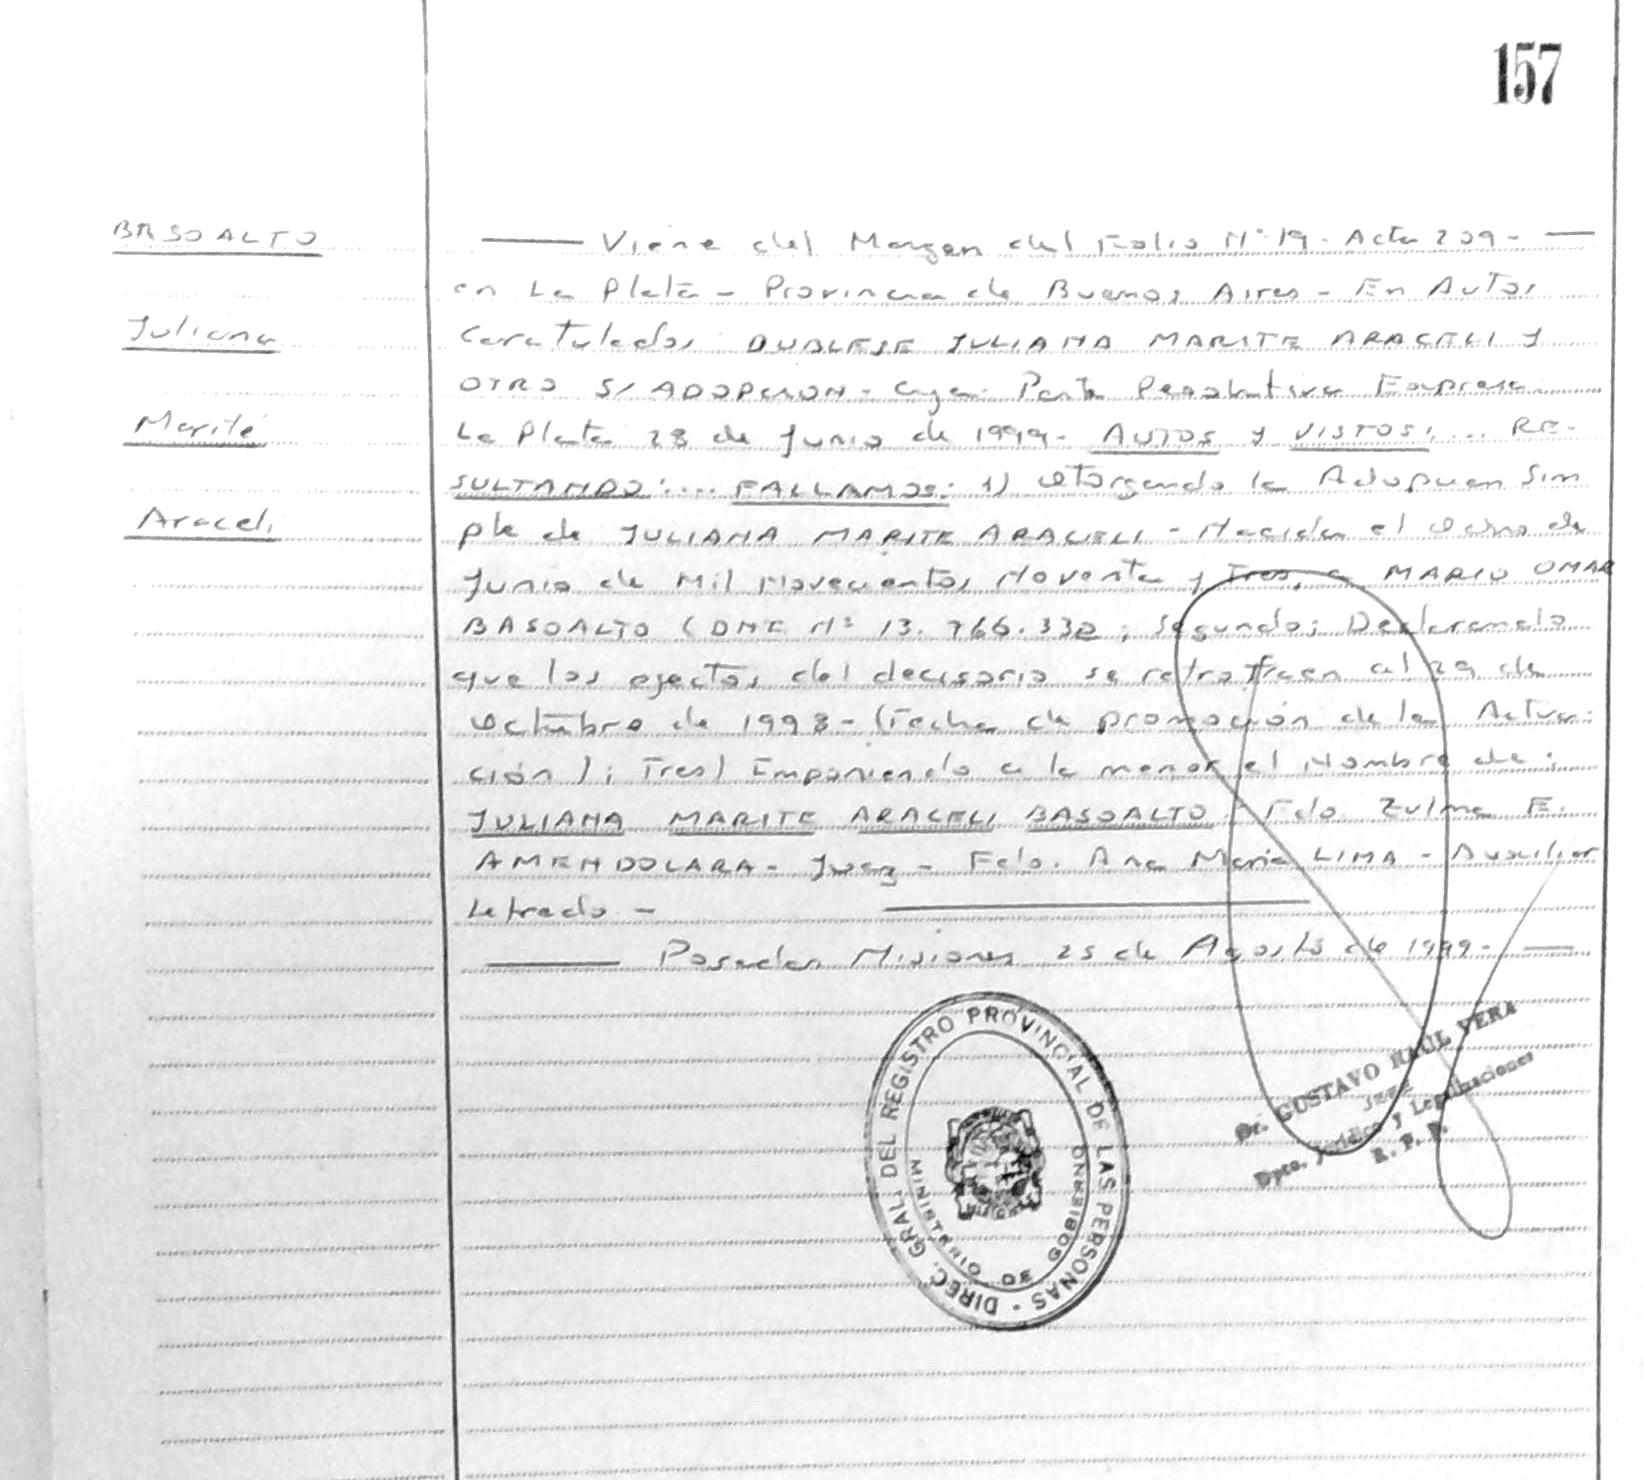 157
BASOALTO
Juliana
Marité
Araceli
Viene del Margen del Folio Nº 19 - Acta 209 -
en La Plata - Provincia de Buenos Aires - En Autos
Caratulados: JULIANA MARITE ARACELI Y
OTRO S/ ADOPCION - Cuya Parte Resolutiva Expresa
La Plata 28 de Junio de 1999 - AUTOS Y VISTOS: ... RE-
SULTANDO: .... FALLAMOS: 1) Otorgando la Adopcion Sim
ple de JULIANA MARITE ARACELI - Nacida el de
Junio de Mil Novecientos Noventa y Tres, a MARIO OMAR
BASOALTO (DNI Nº 13.766.332; Segundo; Declarando
que los efectos del decisorio se retrotraen al 29 de
Octubre de 1998 - (Fecha de promoción de la Actua-
ción); Tres) Imponiendo a la menor el Nombre de:
JULIANA MARITE ARACELI BASOALTO. Fdo Zulma E.
AMENDOLARA - Juez - Fdo. Ana Maria LIMA - Auxiliar
Letrado -
Posadas Misiones 25 de Agosto de 1999 -
DIREC. GRAL. DEL REGISTRO PROVINCIAL DE LAS PERSONAS -
MINISTERIO DE GOBIERNO
Dr. GUSTAVO RAUL VERA
JEFE
Dpto. Jurídico y Legalizaciones
R. P. P.